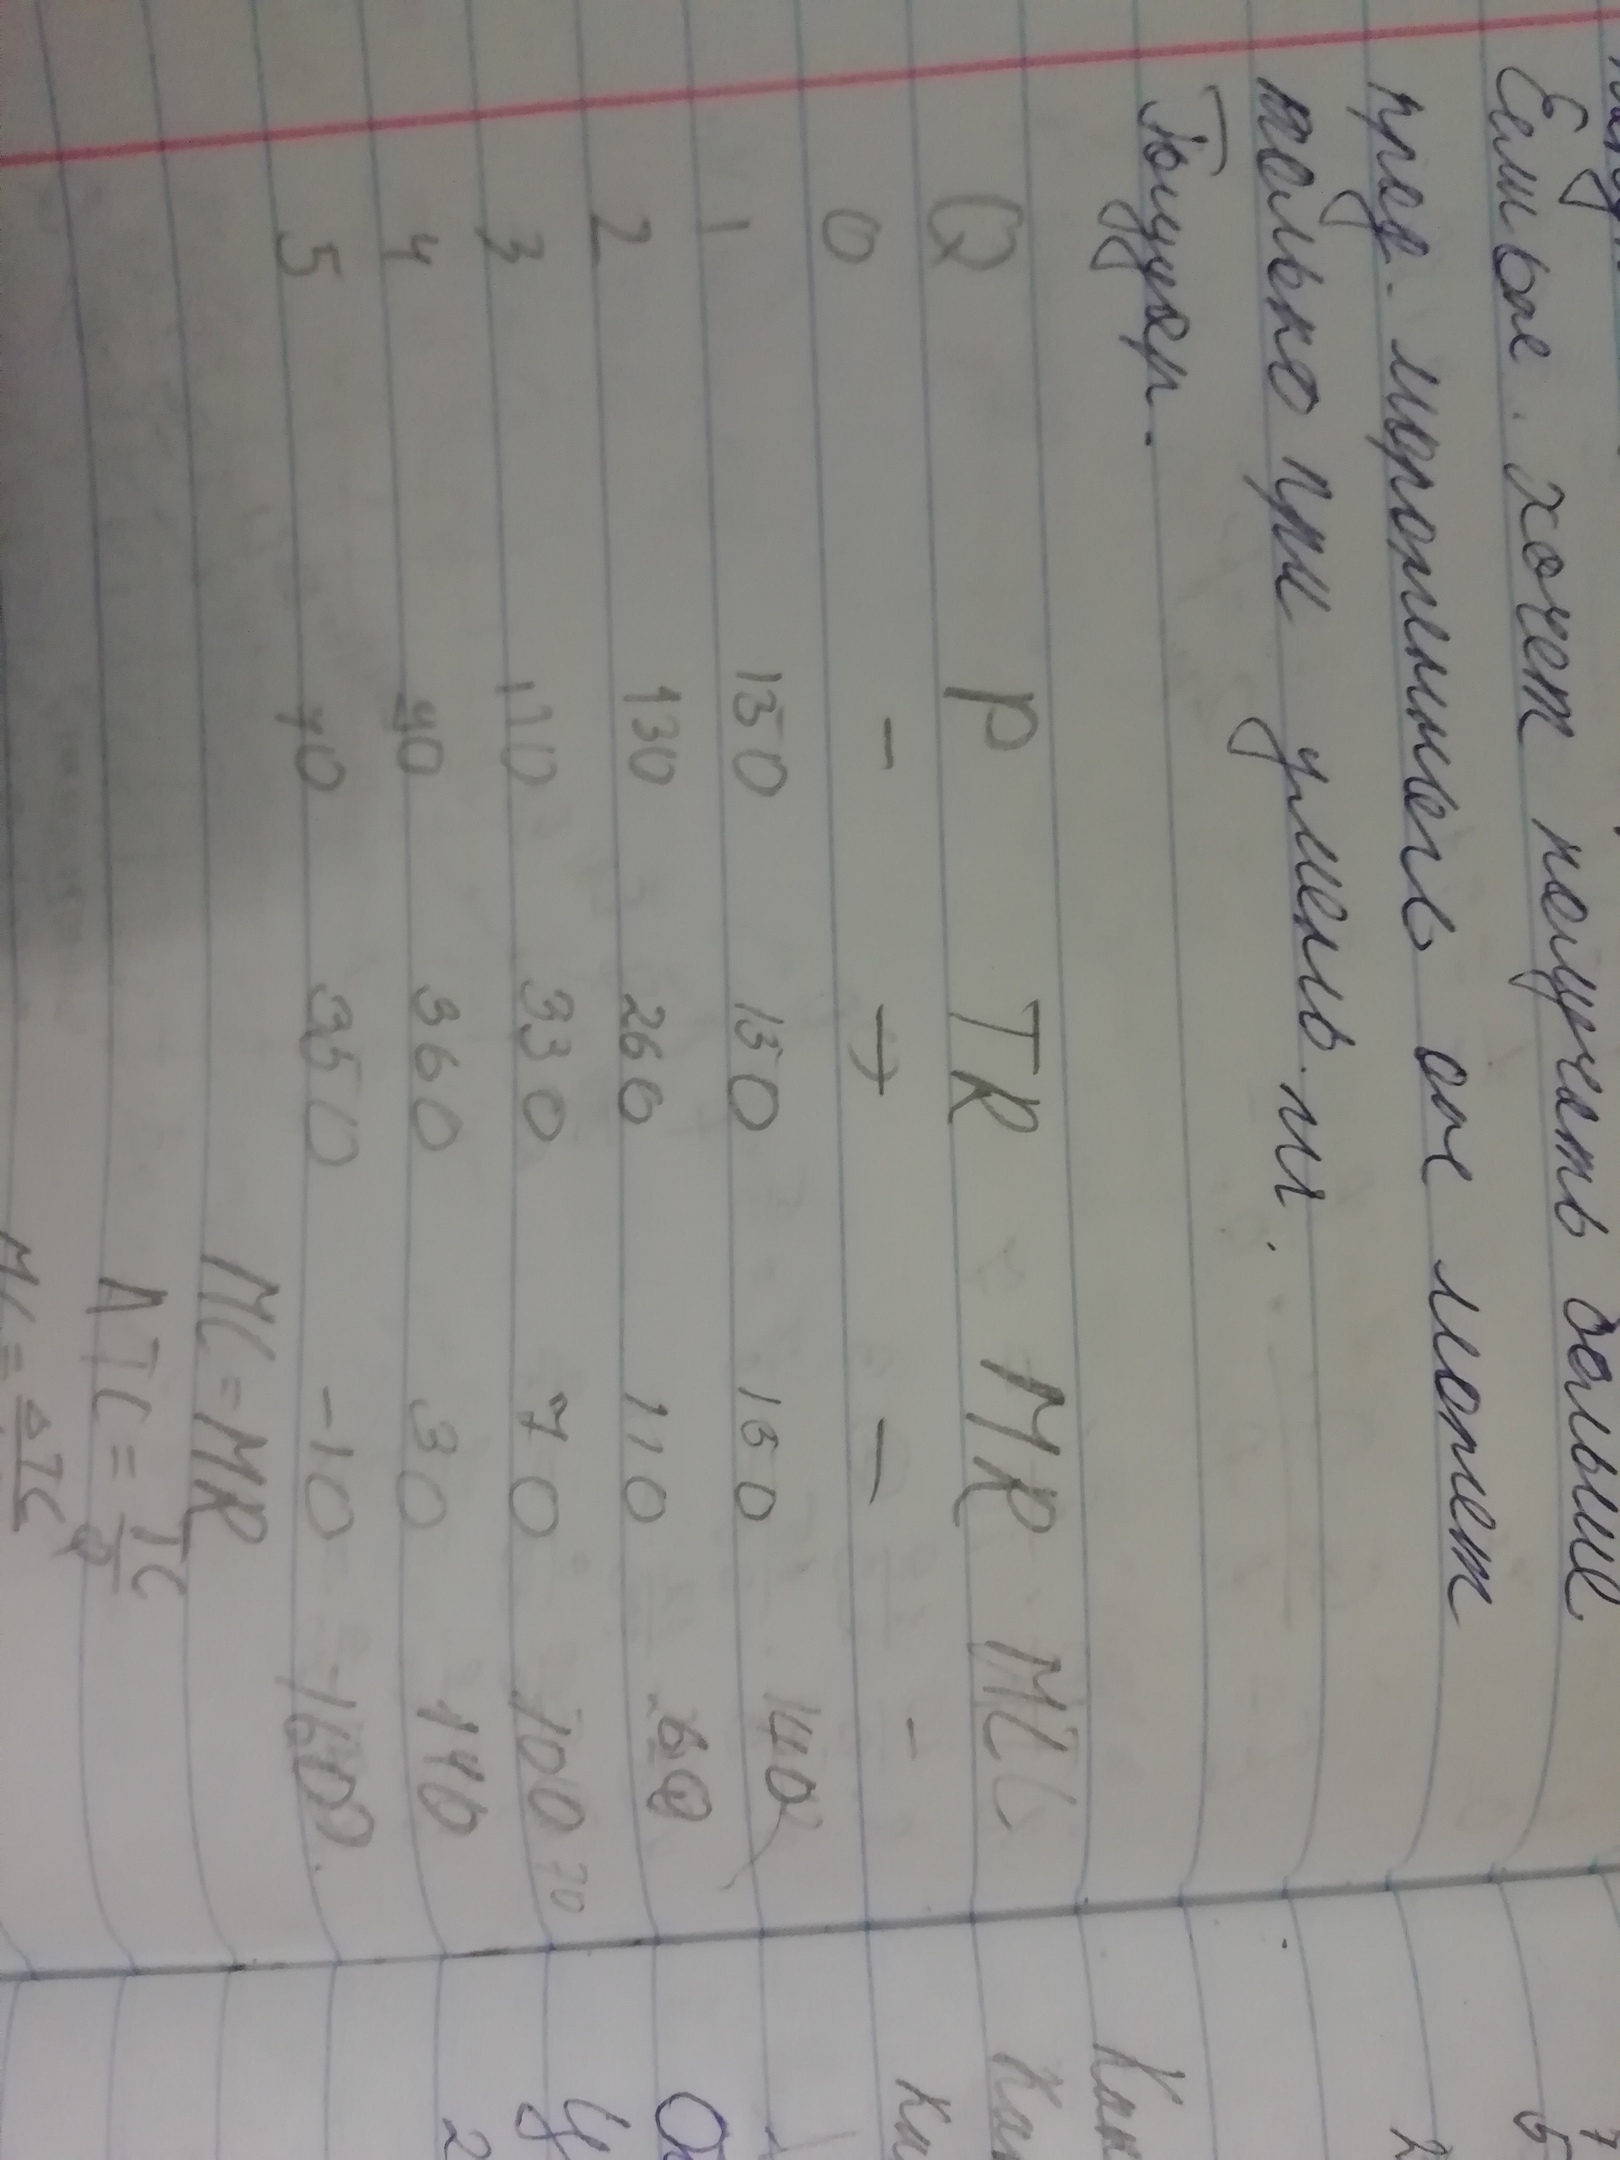 Если вы . хочет получать больше
прод. мороженного он может
только при умень. ш.
Q P TR MR MC
0 — — — -
1 150 150 150 140
2 130 260 110 60
3 110 330 70 100 70
4 90 360 30 140
5 70 350 -10 160
MC = MR
ATC = TC/Q
MC = ΔTC
Как
Как
Ка
2
7
5
2